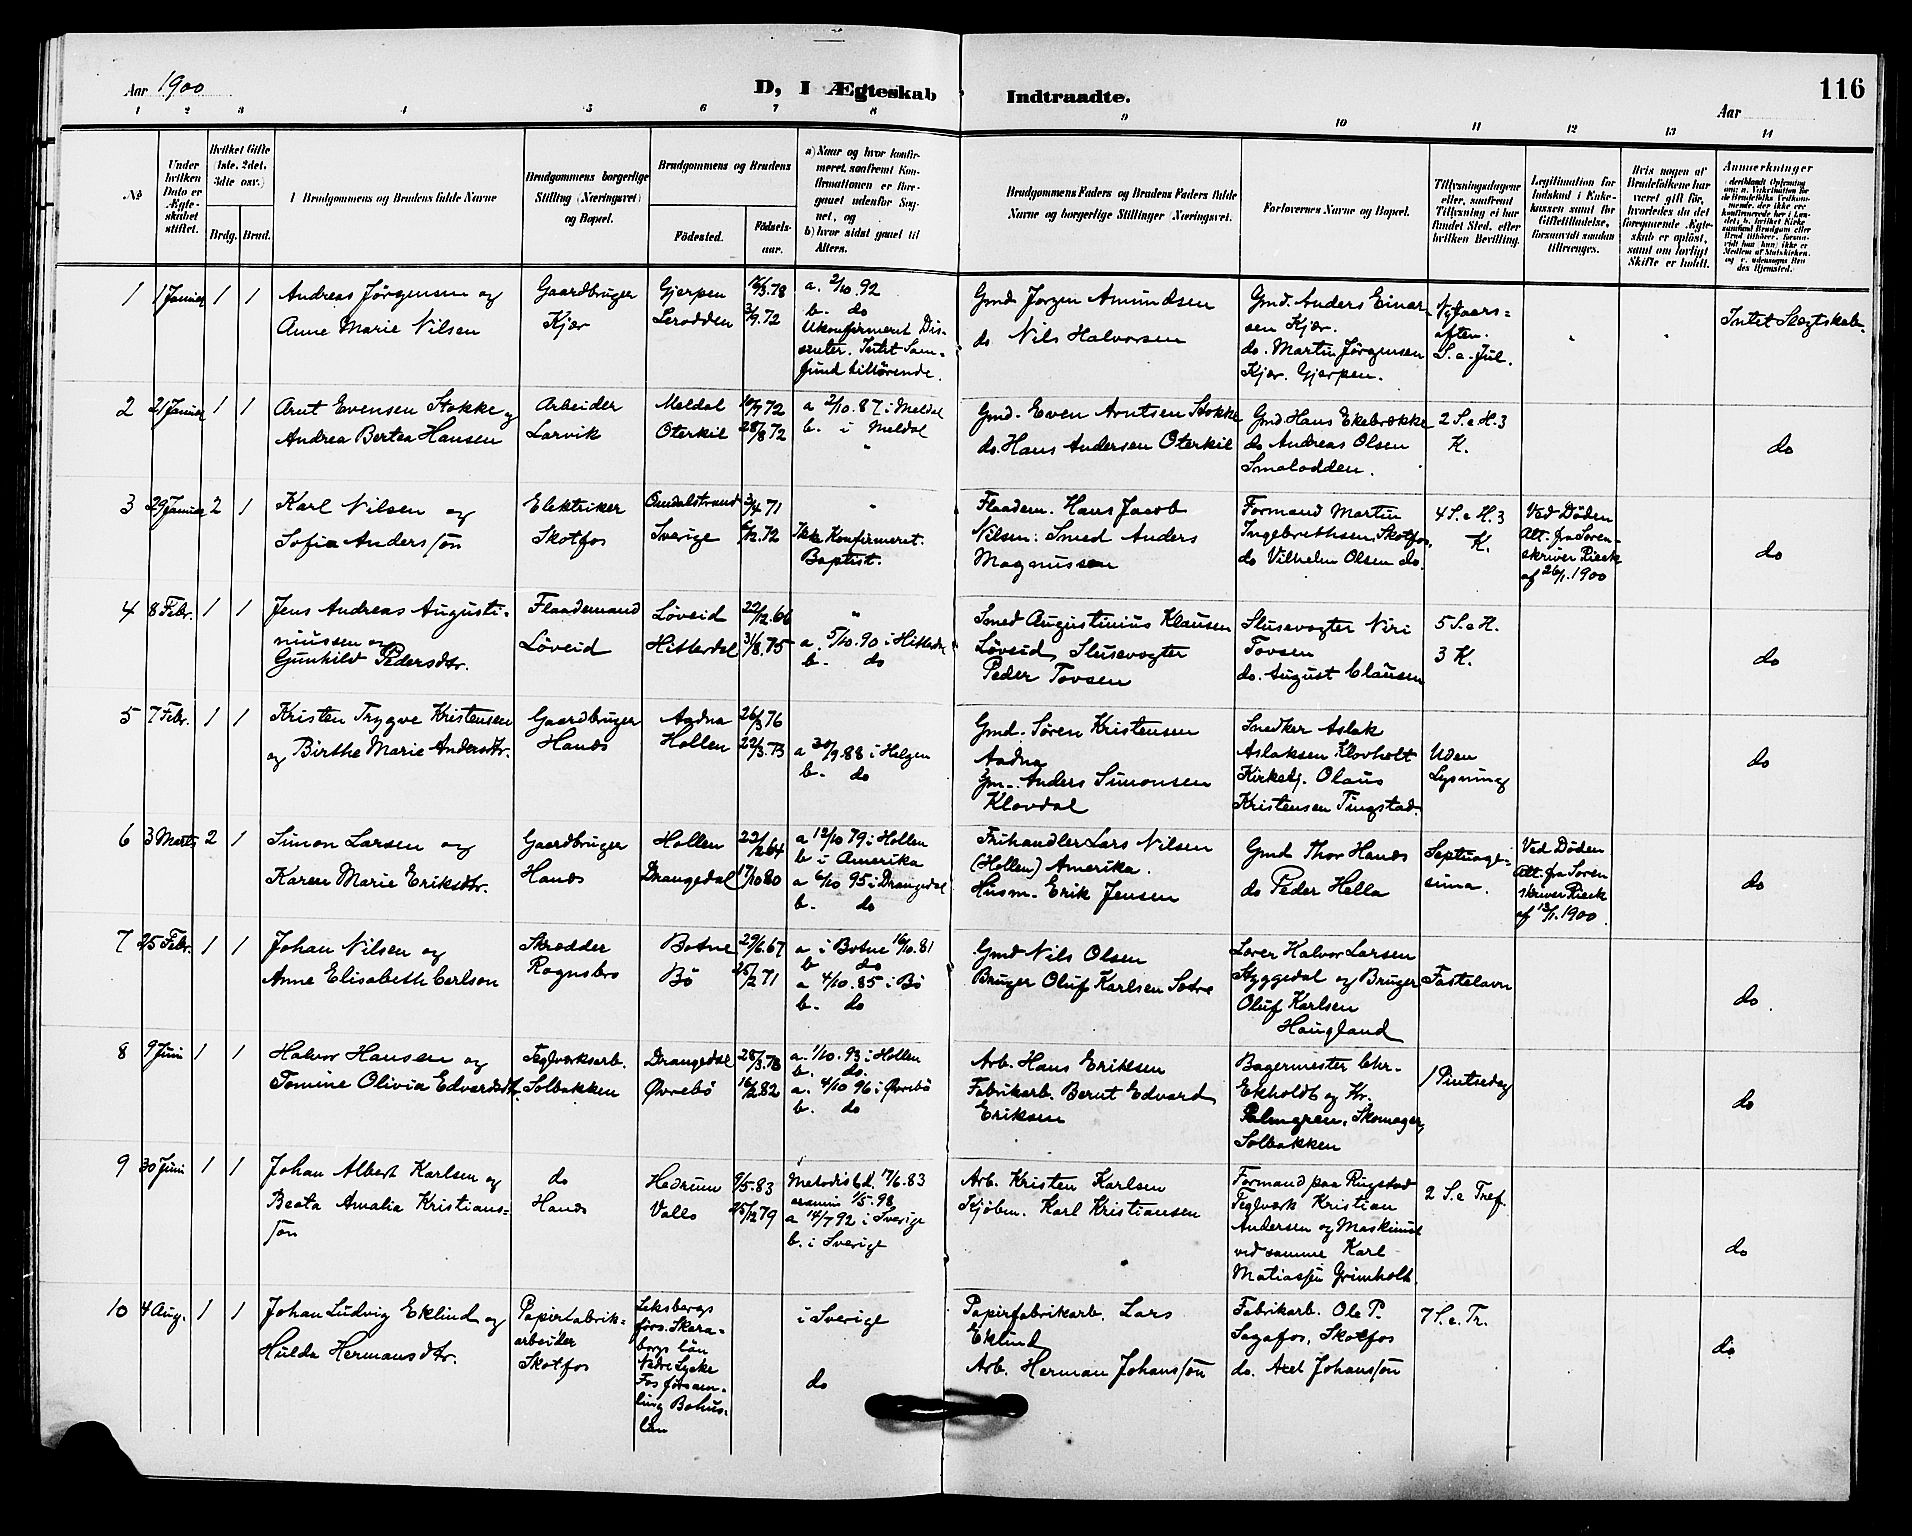 Aar 1900
D, I Ægteskab Indtraadte.
116
Aar
1 2 3 4 5 6 7 8 9 10 11 12 13 14
№
Under hvilken Dato er Ægteskabet stiftet.
Hvilket Gifte (1ste, 2det, 3die osv.)
Brdg. Brud.
Brudgommens og Brudens fulde Navne
Brudgommens borgerlige Stilling (Næringsvei) og Bopæl.
Brudgommens og Brudens
Fødested.
Fødselsaar.
a) Naar og hvor konfirmeret, saafremt Konfirmationen er foregaaet udenfor Sognet, og
b) hvor sidst gaaet til Alters.
Brudgommens Faders og Brudens Faders fulde Navne og borgerlige Stillinger (Næringsvei.
Forlovernes Navne og Bopæl.
Tillysningsdagene eller, saafremt Tillysning ei har fundet Sted, efter hvilken Bevilling.
Legitimation for Indskud i Enkekassen samt for Giftetilladelse, forsaavidt saadan tiltrænges.
Hvis nogen af Brudefolkene har været gift før, hvorledes da det foregaaende Ægteskab er opløst, samt om lovligt Skifte er holdt.
Anmærkninger
1 1 Januar 1 1
Andreas Jørgensen og
Anne Marie Nilsen
Gaardbruger
Kjær
Gjerpen
3/9.72
a. 2/10.92
b. do
Ukonfirmeret Dissenter. Intet Samfund tilhørende.
Gmd. Jørgen Amundsen
do. Nils Halvorsen
Gmd. Anders Einarsen Kjær.
do. Martin Jørgensen
Kjær. Gjerpen.
Nytaarsaften.
S. a. Jul.
Intet Slægtskab
2 21 Januar 1 1
Arnt Evensen Stokke og
Andrea Bertea Hansen
Arbeider
Larvik
Meldal
Oterkil
28/8 72
a 2/10.87 i Meldal
b. i Meldal
"
Gmd. Even Arntsen Stokke
do. Hans Andersen Oterkil
Gmd Hans Ekebrække
do Andreas Olsen
Smalodden.
2 S. e H. 3
K.
do
3 29 Januar 2 1
Karl Nilsen og
Sofia Andersson
Elektriker
Skotfos
Omdalstrand
Sverige
3/4 71
6/12.72
"
Ikke Konfirmeret.
Baptist.
Flaadem. Hans Jacob
Nilsen. Smed Anders
Magnussen
Formand Martin
Ingebrethsen Skotfos.
do Vilhelm Olsen do.
4 S. e H. 3
K.
Ved Døden
Att. fra Sorenskriver Rieck
af 26/1.1900
do
4 8 Febr. 1 1
Jens Andreas Augustiniussen og
Gunhild Pedersdtr.
Flaademand
Løveid
Løveid
Hitterdal
22/12.66
31/8.75
"
a. 5/10.90 i Hitterdal
b. do
Smed Augustinius Klausen
Løveid, Slusevogter
Peder Tovsen
Slusevogter Niri
Tovsen
do. August Clausen
5 S. e H.
3 K.
do
5 7 Febr. 1 1
Kristen Trygve Kristensen
og Birthe Marie Andersdtr.
Gaardbruger
Hanes
Aadna
Hollen
26/3 76
22/3.73
a 30/9.88 i Helgen
b. do
Gmd. Søren Kristensen
Aadna
Gm. Anders Simonsen
Klovdal
Snedker Aslak
Aslaksen Klovholt
Kirketj. Olaus
Kristensen Tingstad.
Uden
Lysning
do
6 3 Marts 2 1
Simon Larsen og
Karen Marie Eriksdtr.
Gaardbruger
Hanes
Hollen
Drangedal
22/12 64
17/10 80
a 12/10 79 i Hollen
b i Amerika
a 6/10 95 i Drangedal
b. do
Frihandler Lars Nilsen
(Hollen) Amerika.
Husm. Erik Jensen
Gmd Thor Hanes
do Peder Hella
Septuagesima.
Ved Døden
Att. fra Sorenskriver Rieck
af 13/1.1900
do
7 25 Febr. 1 1
Johan Nilsen og
Anne Elisabeth Carlson
Skrædder
Rognsbro
Botne
Bø
29/6.67
25/2 71
a i Botne 16/10.81
b do
a 4/10.85 i Bø
b. do
Gmd Nils Olsen
Bruger Oluf Karlsen Sætre
Lærer Halvor Larsen
Styggedal og Bruger
Oluf Karlsen
Haugland
Fastelavn
do
8 9 Juni 1 1
Halvor Hansen og
Tomine Olivia Edvardsdtr.
Teglværksarb.
Solbakken
Drangedal
Øvrebø
28/3.78
16/2.82
a. 1/10.93 i Hollen
b. do.
a. 4/10 96 i Øvrebø
b. do
Arb. Hans Eriksen
Fabrikarb. Bernt Edvard
Eriksen
Bagermester Chr.
Ekholdt og Kr.
Palmgren, Skomager,
Solbakken
1 Pintsedag
do
9 30 Juni 1 1
Johan Albert Karlsen og
Beata Amalia Kristiansson
do
Hanes
Hedrum
Valls
9/5.83
25/12 79
Metodist d. 17/6.83
1/5.98
a 14/7 92 i Sverige
b. i Sverige
Arb. Kristen Karlsen
Kjøbm. Karl Kristiansen
Formand paa Rugstad
Teglværk Kristian
Andersen og Maskinist
ved samme Karl
Matiassen Grimholt.
2 S. e Tref.
do
10 4 Aug. 1 1
Johan Ludvig Eklind og
Hulda Hermansdtr.
Papirfabrikarbeider
Skotfos
Leksbergs
förs. Skaraborgs län
Fos församling Bohuslän
i Sverige
do
Papirfabrikarb. Lars
Eklind
Arb. Herman Johansson
Fabrikarb. Ole P.
Sagafos, Skotfos
do. Axel Johansson
7 S. e. Tr.
do